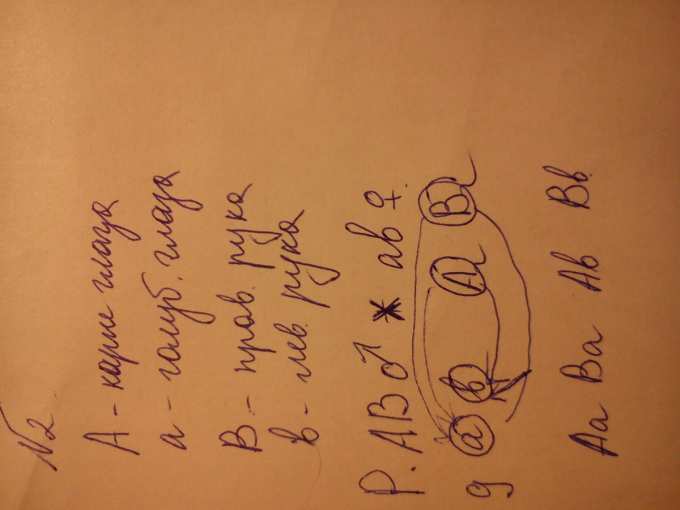 №2
А - карие глаза
а - голуб. глаза
В - прав. рука
в - лев. рука
Р. АВ♂ * ав ♀.
g а в А В
Аа Ва Ав Вв